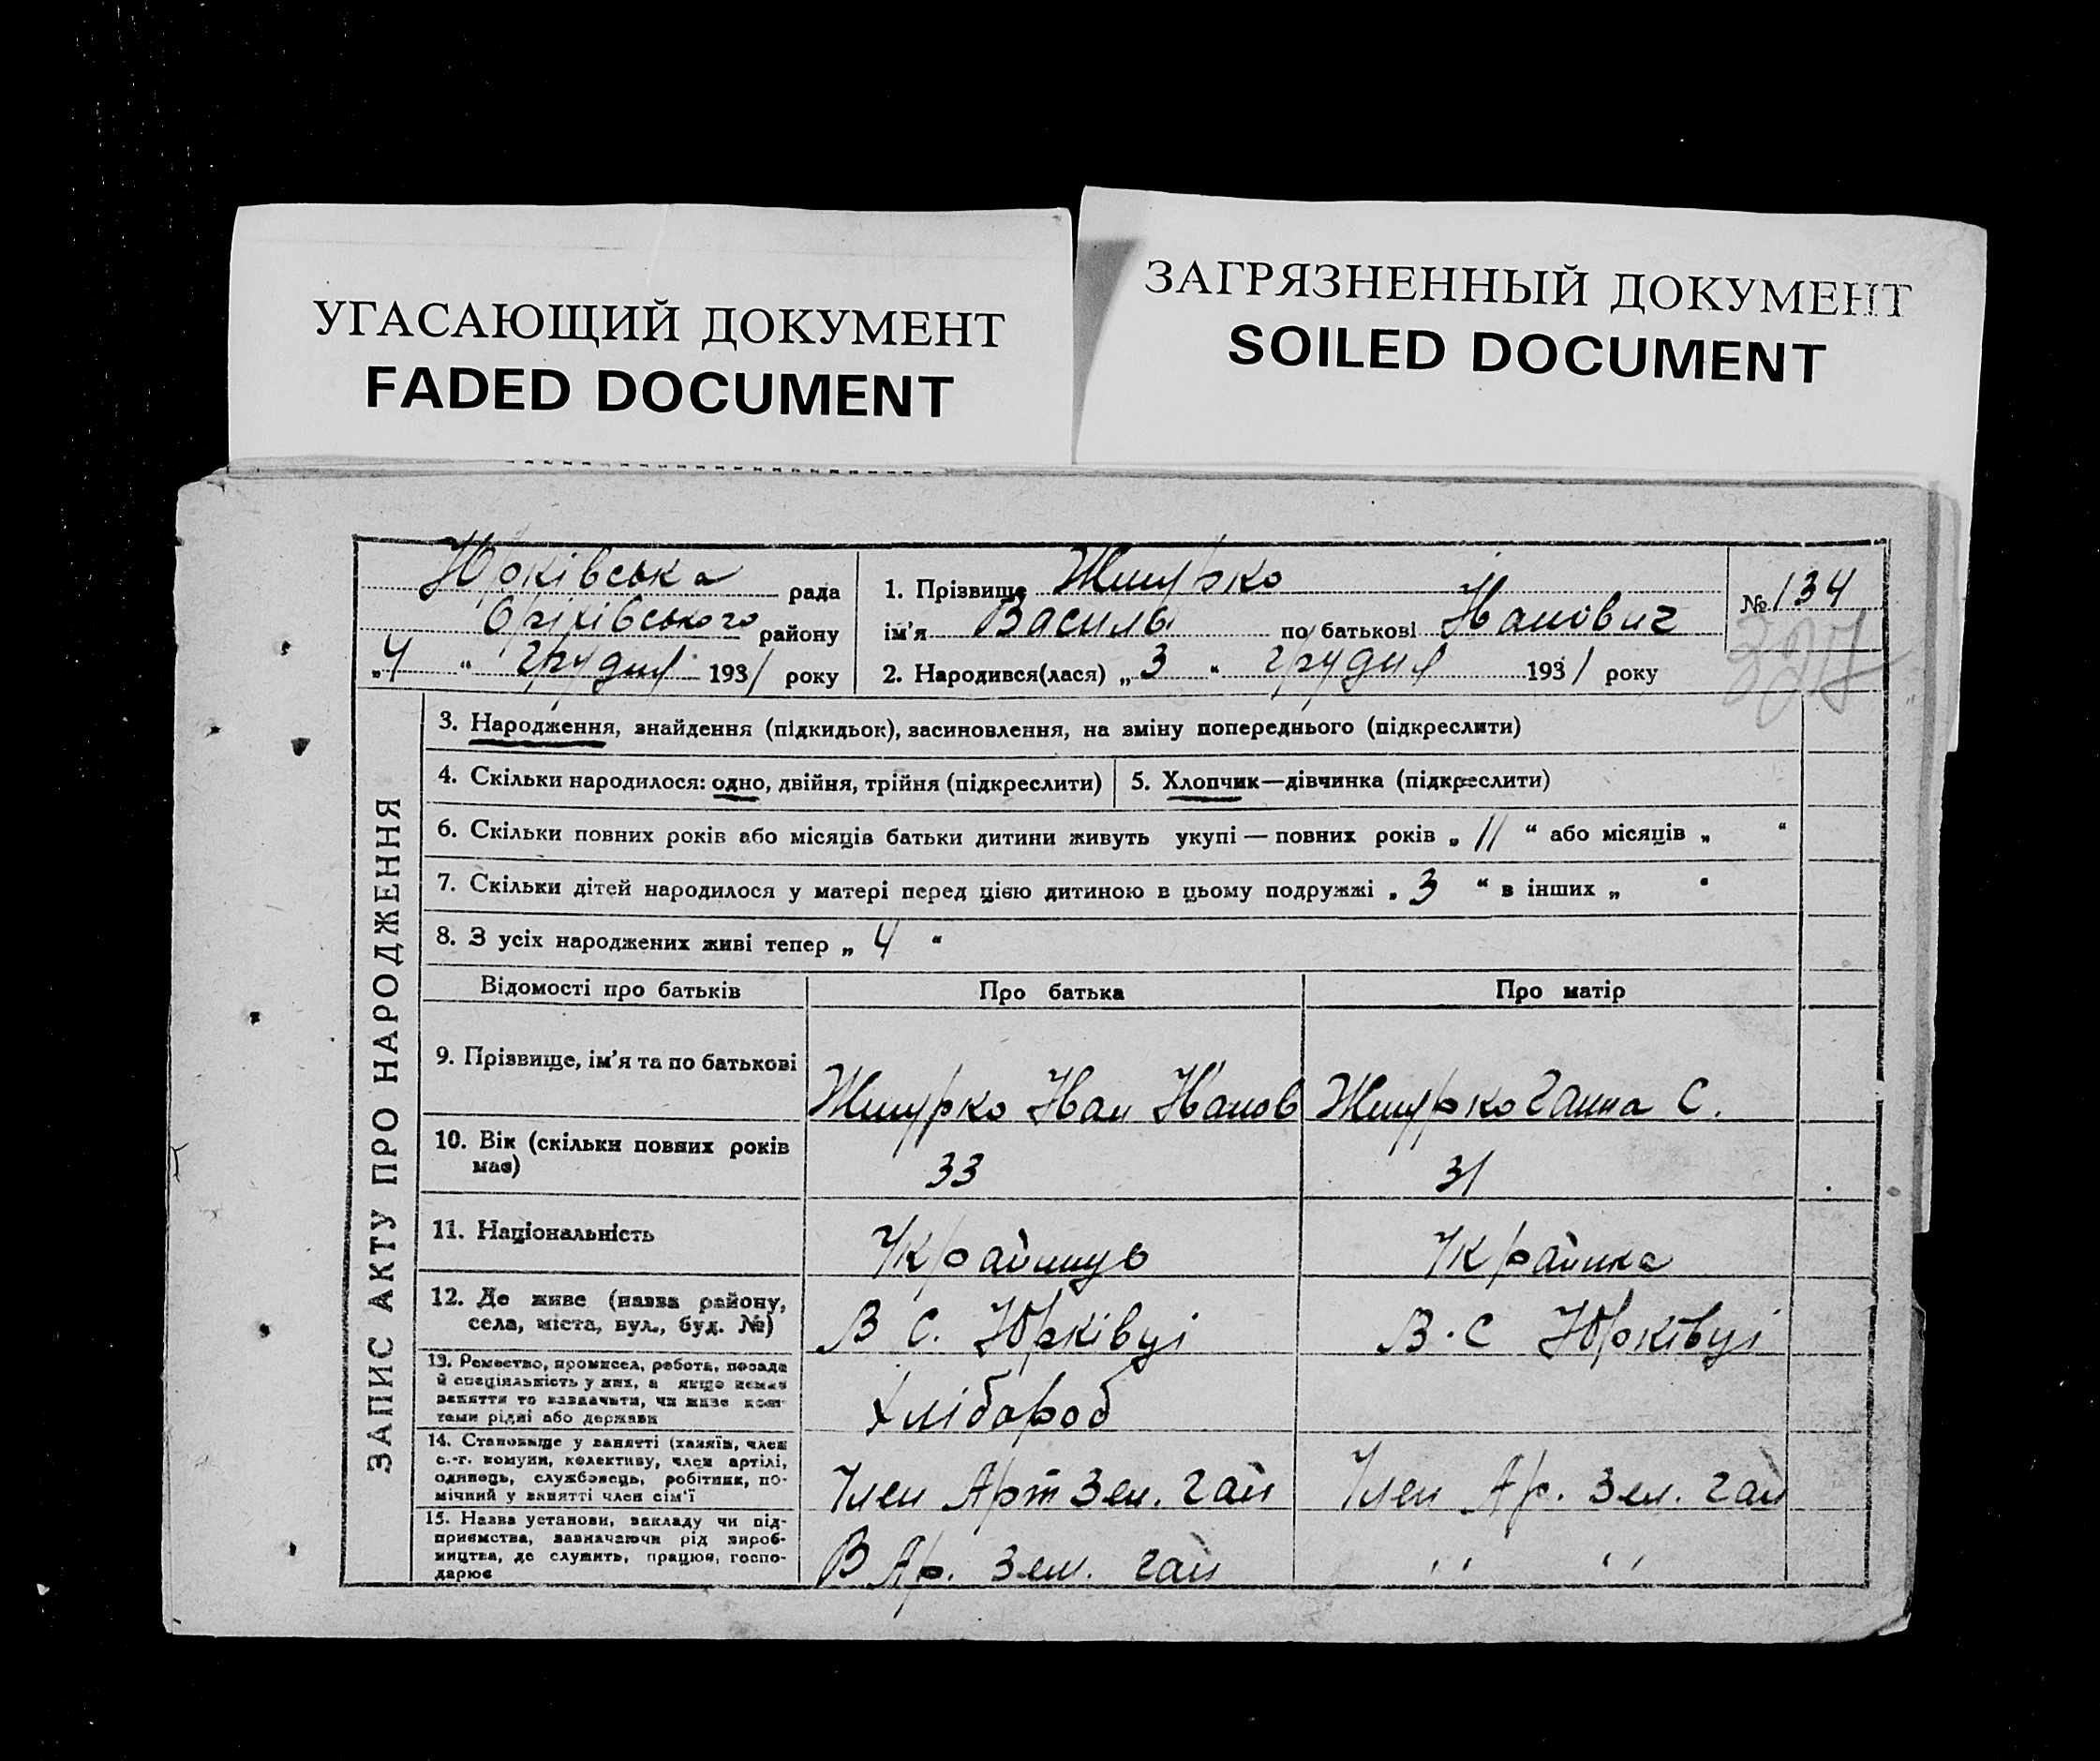 УГАСАЮЩИЙ ДОКУМЕНТ
FADED DOCUMENT
ЗАГРЯЗНЕННЫЙ ДОКУМЕНТ
SOILED DOCUMENT
Юрківська рада
Оріхівського району
„4 “ грудня 1931 року
1. Прізвище Жмурко
ім'я Василь по батькові Іванович
2. Народився(лася) „3 “ грудня 1931 року
№ 134
ЗАПИС АКТУ ПРО НАРОДЖЕННЯ
3. Народження, знайдення (підкидьок), засиновлення, на зміну попереднього (підкреслити)
4. Скільки народилося: одно, двійня, трійня (підкреслити)
5. Хлопчик—дівчинка (підкреслити)
6. Скільки повних років або місяців батьки дитини живуть укупі — повних років „ 11 “ або місяців „ “
7. Скільки дітей народилося у матері перед цією дитиною в цьому подружжі „ 3 “ в інших „ “
8. З усіх народжених живі тепер „ 4 “
Відомості про батьків Про батька Про матір
9. Прізвище, ім'я та по батькові
Жмурко Иван Иванов Жмурко Ганна С.
10. Вік (скільки повних років має)
33 31
11. Національність
Українць Українка
12. Де живе (назва району, села, міста, вул., буд. №)
В с. Юрківці В. С Юрківці
13. Ремество, промисел, робота, посада й спеціяльність у них, а якщо немає заняття то зазначити, чи живе коштами рідні або держави
Хлібороб
14. Становище у занятті (хазяїн, член с.-г. комуни, колективу, член артілі, одинець, службовець, робітник, помічний у занятті член сім'ї
Член Арт Зел. гай Член Ар. Зел. гай
15. Назва установи, закладу чи підприємства, зазначаючи рід виробництва, де служить, працює, господарює
В Ар. Зел. гай ״ ״